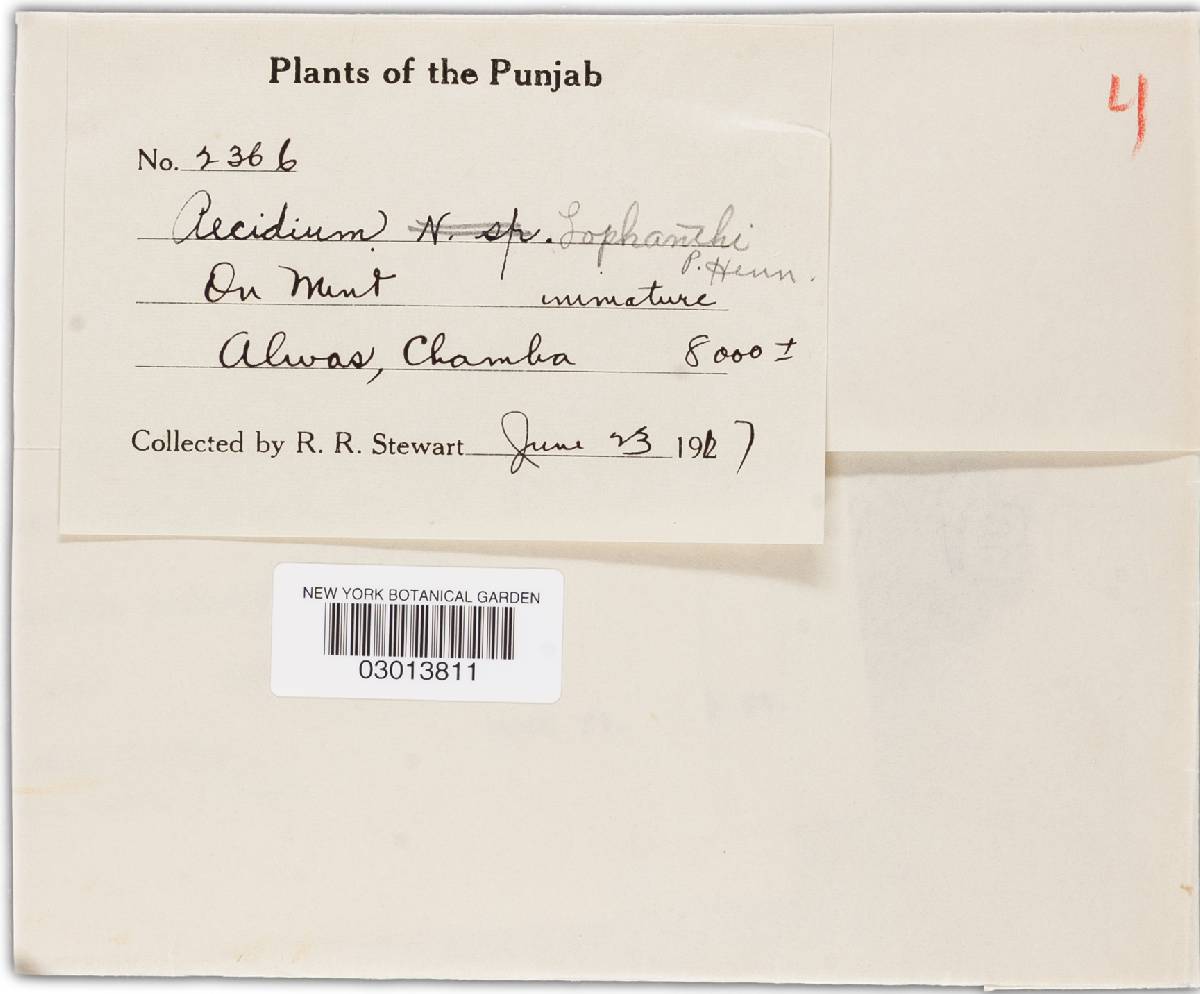 Plants of the Punjab
4
No. 2366
Aecidium N. sp. Lophanthi
P. Henn.
On Mint immature
Alwas, Chamba 8000 ±
Collected by R. R. Stewart June 23 1917
NEW YORK BOTANICAL GARDEN
03013811